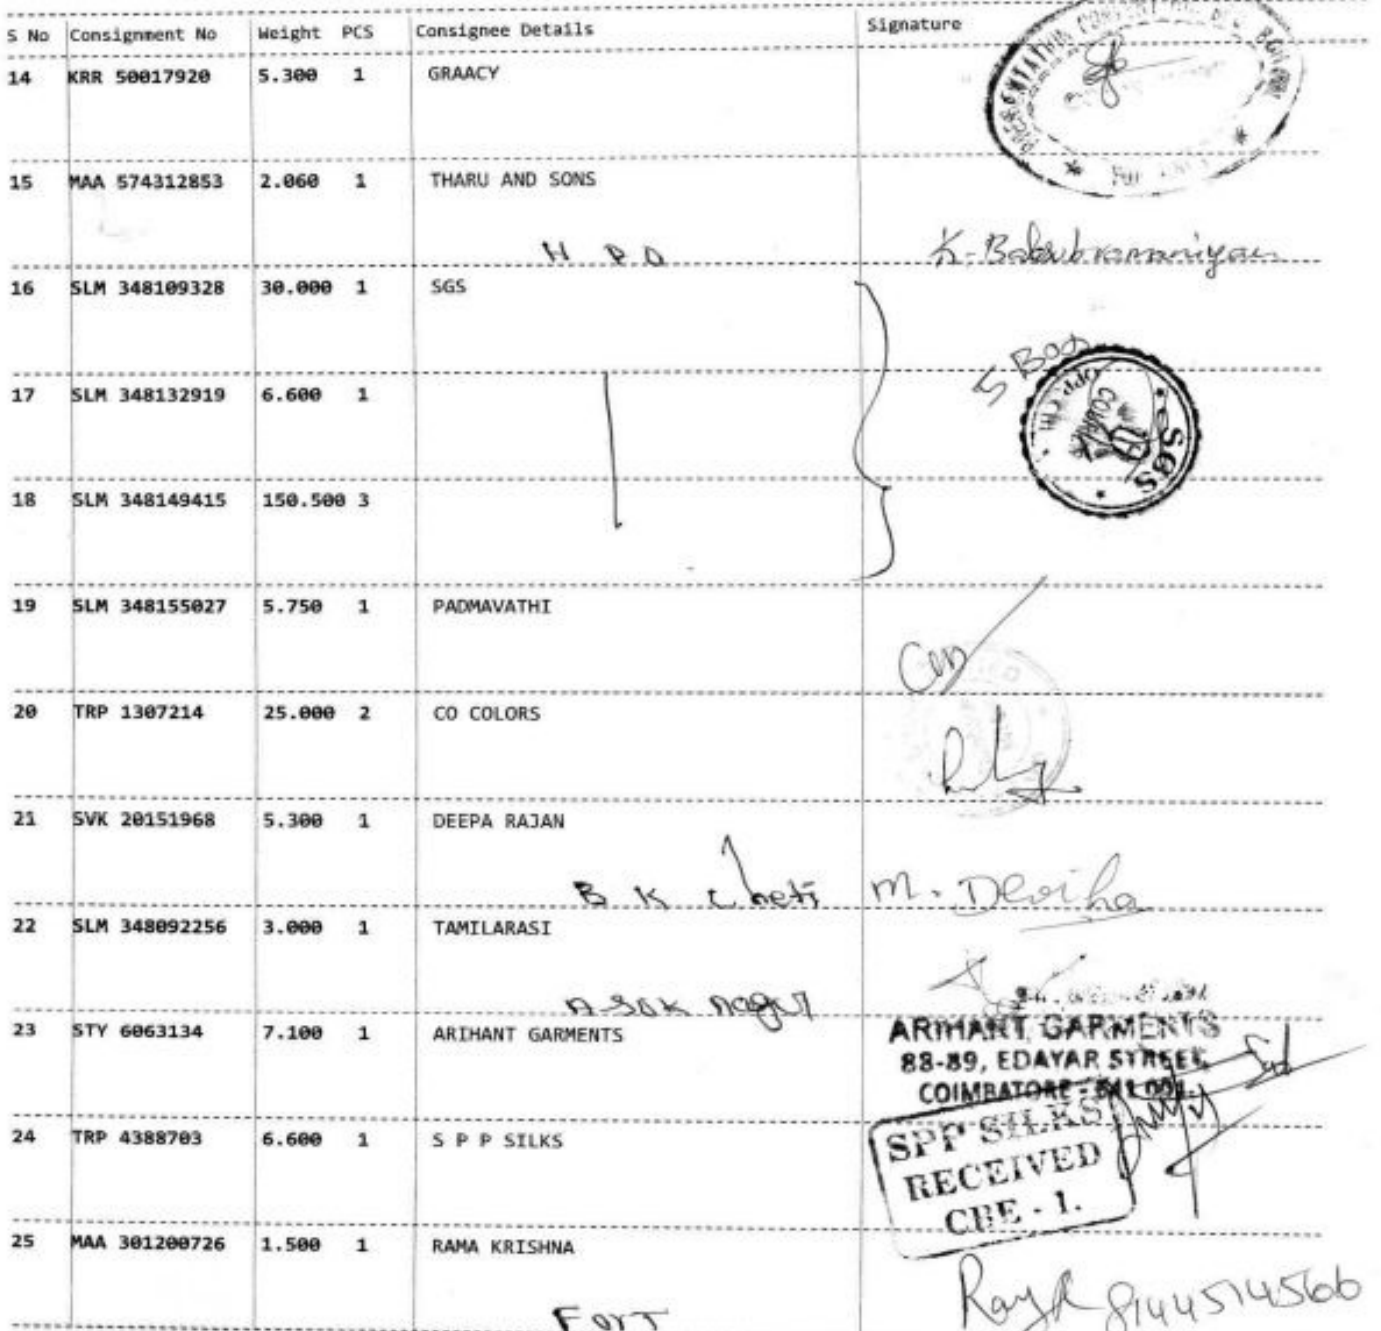 S No Consignment No Weight PCS Consignee Details Signature
14 KRR 50017920 5.300 1 GRAACY
15 MAA 574312853 2.060 1 THARU AND SONS
H P O K. Balasubramaniyan
16 SLM 348109328 30.000 1 SGS
5 Box
17 SLM 348132919 6.600 1
SGS
18 SLM 348149415 150.500 3
19 SLM 348155027 5.750 1 PADMAVATHI
20 TRP 1307214 25.000 2 CO COLORS
21 SVK 20151968 5.300 1 DEEPA RAJAN
B K Cheti M. Deviha
22 SLM 348092256 3.000 1 TAMILARASI
Asok nagar
23 STY 6063134 7.100 1 ARIHANT GARMENTS
ARIHANT GARMENTS
88-89, EDAYAR STREET
COIMBATORE - 641 001.
24 TRP 4388703 6.600 1 S P P SILKS
SPP SILKS
RECEIVED
CBE - 1.
25 MAA 301200726 1.500 1 RAMA KRISHNA
Fort 8144514566